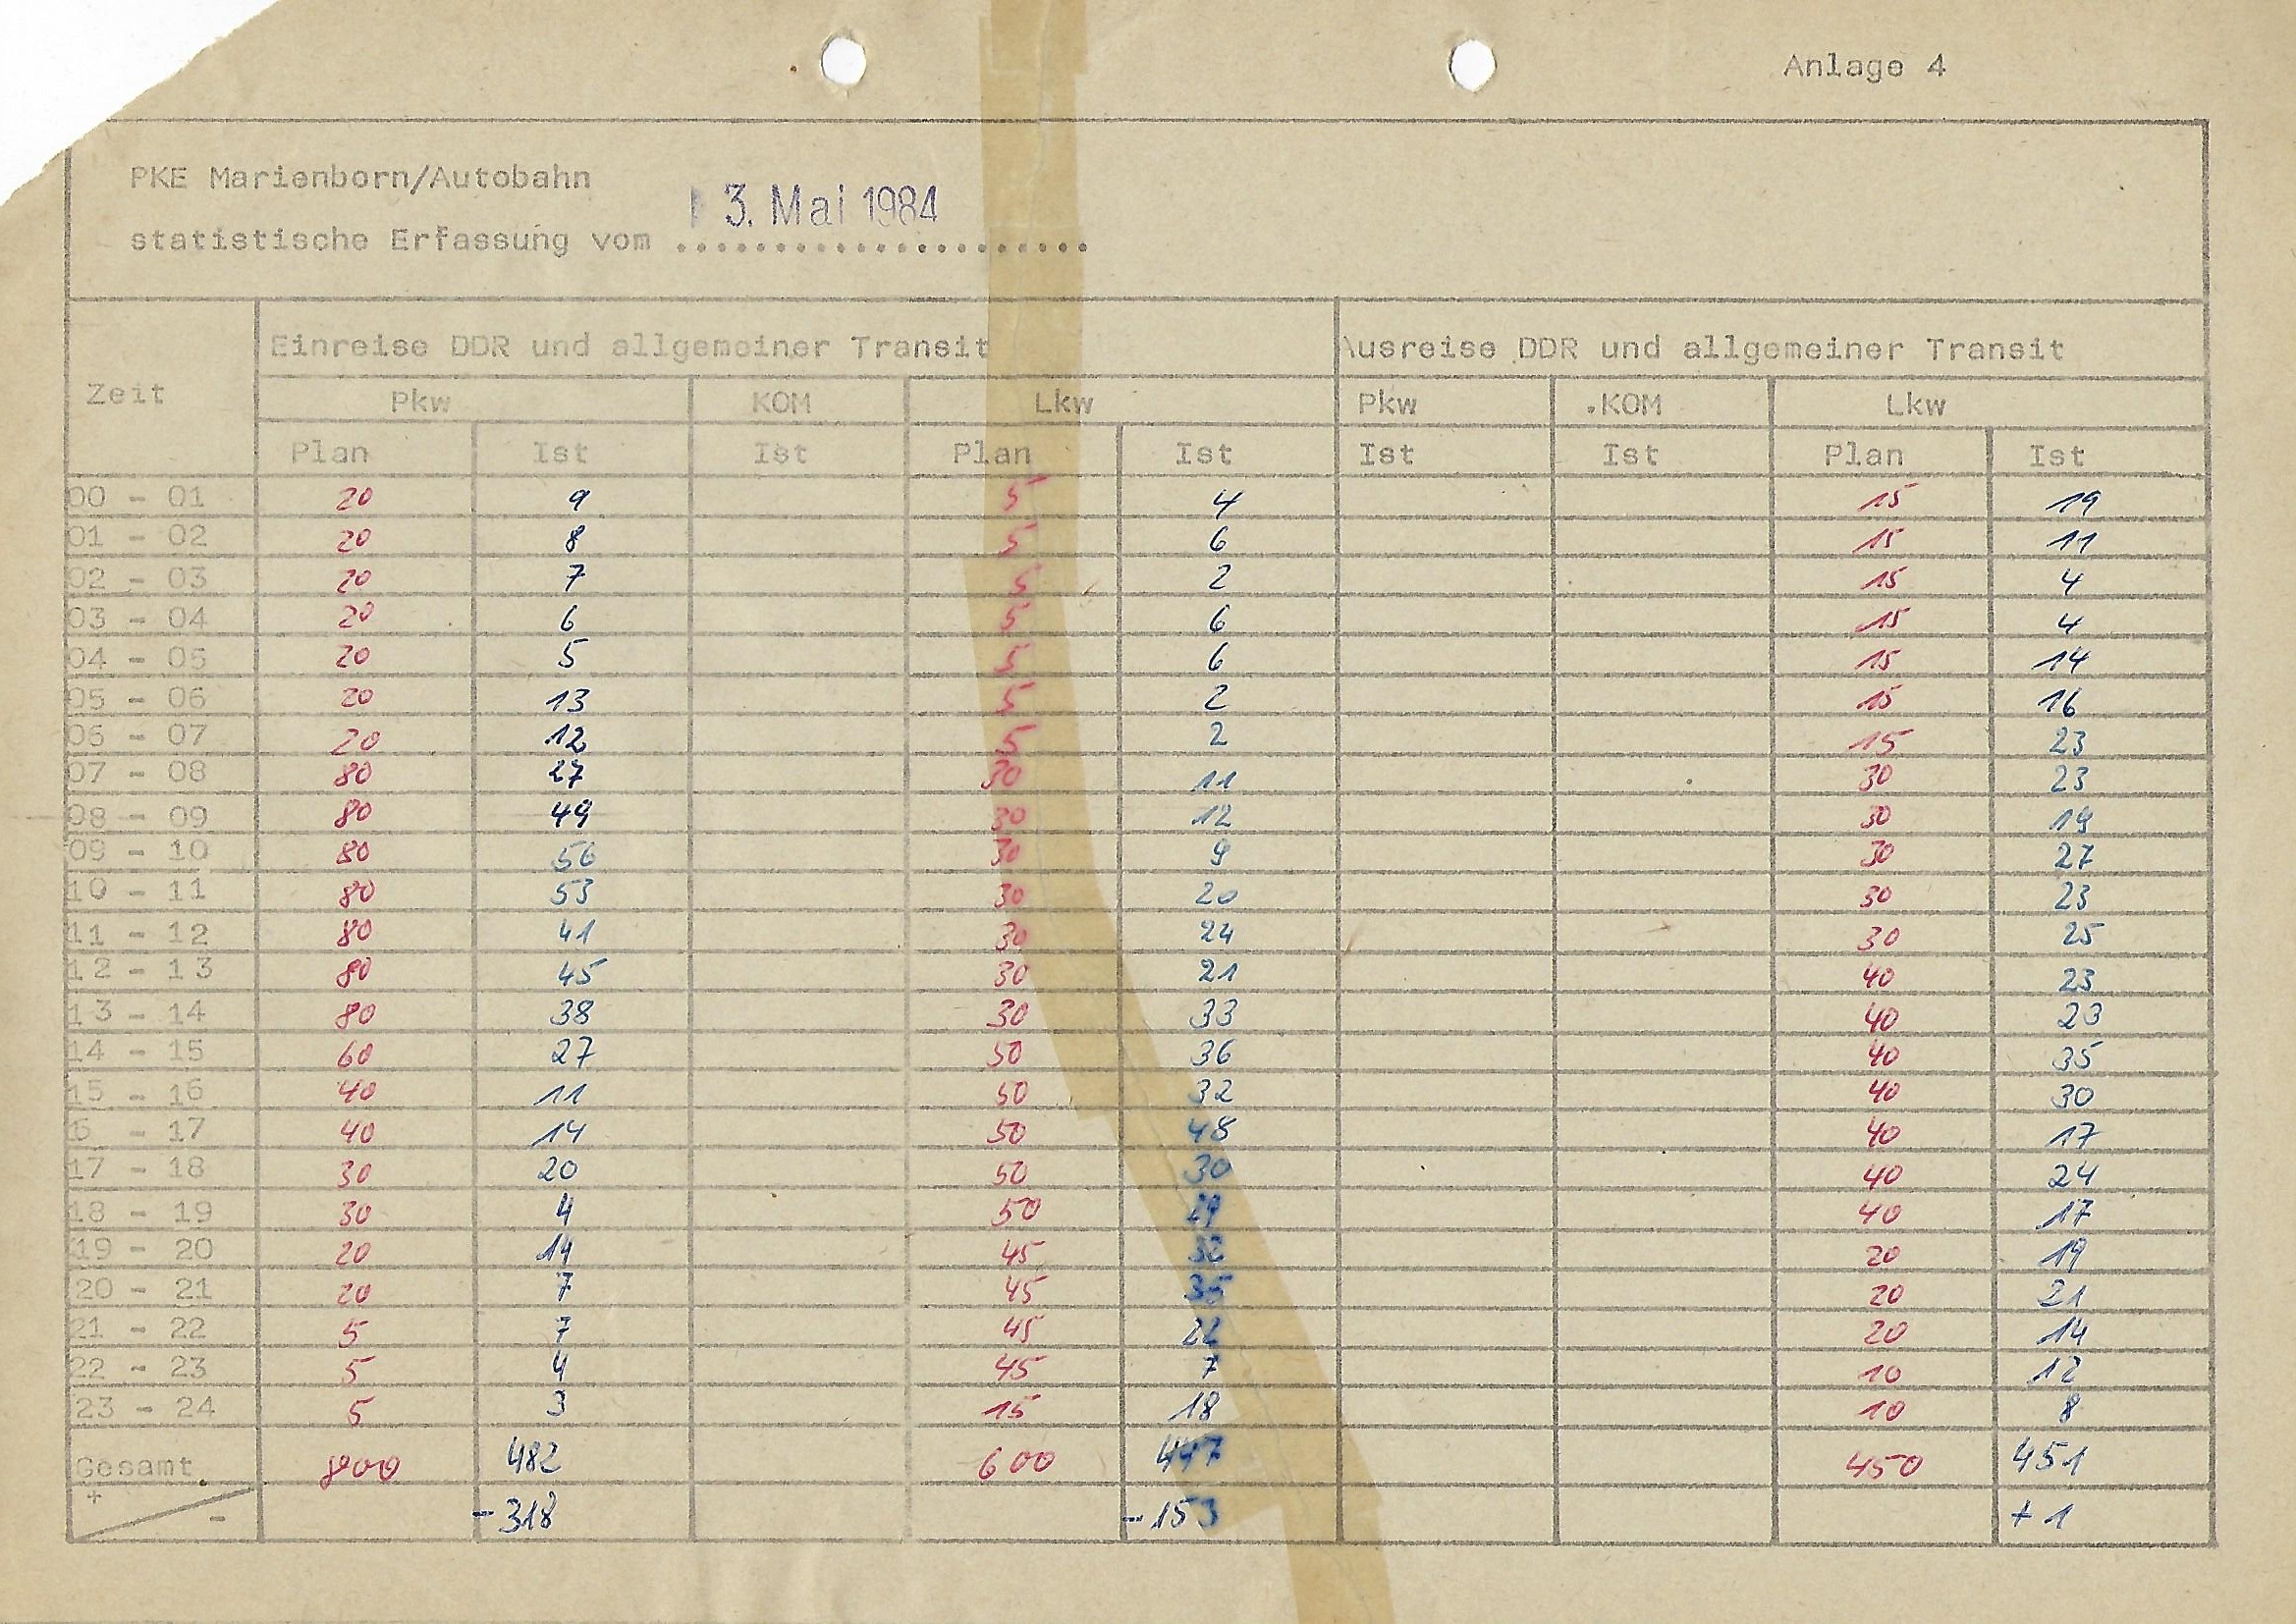 Anlage 4
PKE Marienborn/Autobahn
3. Mai 1984
statistische Erfassung vom ......................
Zeit Einreise DDR und allgemeiner Transit Ausreise DDR und allgemeiner Transit
Pkw KOM Lkw Pkw .KOM Lkw
Plan Ist Ist Plan Ist Ist Ist Plan Ist
00 - 01 20 9 5 4 15 19
01 - 02 20 8 5 6 15 11
02 - 03 20 7 5 2 15 4
03 - 04 20 6 5 6 15 4
04 - 05 20 5 5 6 15 14
05 - 06 20 13 5 2 15 16
06 - 07 20 12 5 2 15 23
07 - 08 80 27 30 11 30 23
08 - 09 80 49 30 12 30 19
09 - 10 80 56 30 9 30 27
10 - 11 80 53 30 20 30 23
11 - 12 80 41 30 24 30 25
12 - 13 80 45 30 21 40 23
13 - 14 80 38 30 33 40 23
14 - 15 60 27 50 36 40 35
15 - 16 40 11 50 32 40 30
6 - 17 40 14 50 48 40 17
17 - 18 30 20 50 30 40 24
18 - 19 30 4 50 29 40 17
19 - 20 20 14 45 32 20 19
20 - 21 20 7 45 35 20 21
21 - 22 5 7 45 22 20 14
22 - 23 5 4 45 7 10 12
23 - 24 5 3 15 18 10 8
Gesamt 800 482 600 447 450 451
+ - -318 -153 +1